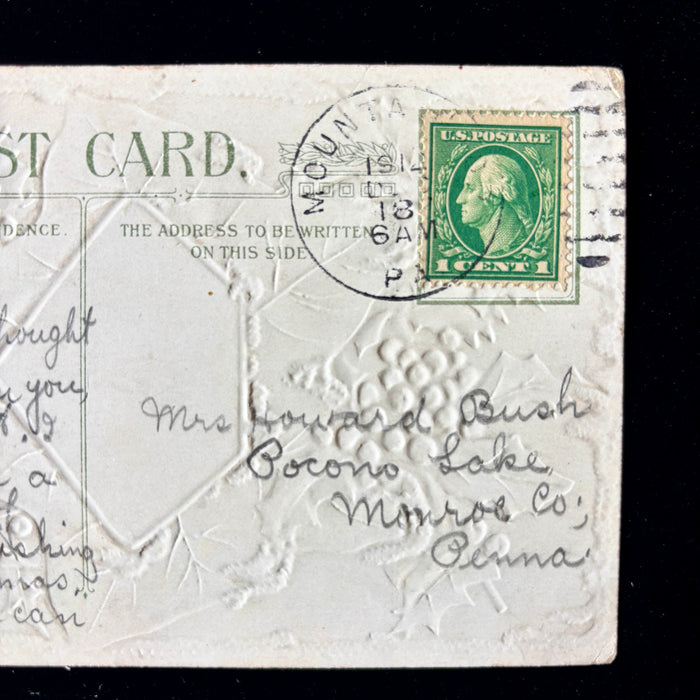 ST CARD.
DENCE.
THE ADDRESS TO BE WRITTEN
ON THIS SIDE
MOUNTA
1914
18
6 AM
PA
U.S. POSTAGE
1 CENT 1
hought
you,
a
shing
mas,
can
Mrs Howard Bush
Pocono Lake
Monroe Co;
Penna